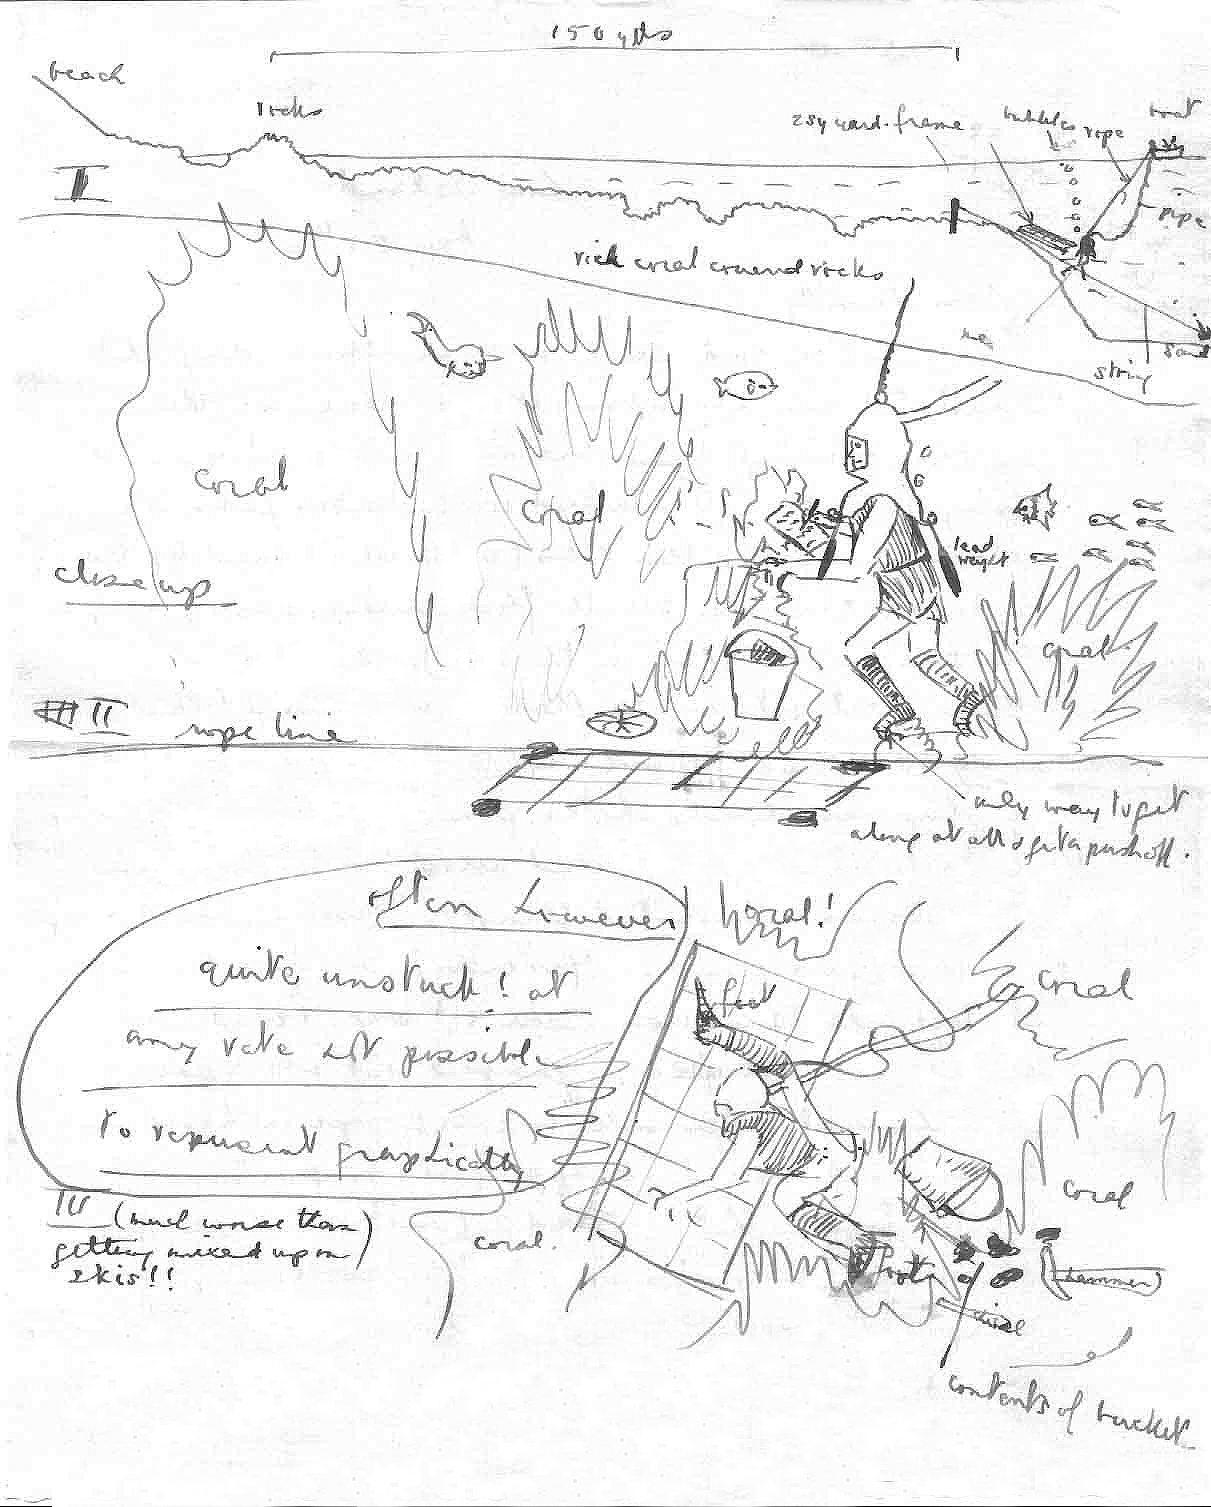 150 yds
beach
rocks
25 yard frame
bubbles
rope
boat
I
pipe
rich coral around rocks
me
sand
string
coral
coral
lead
weight
close up
coral
II rope line
only way to get
along at all & get a push off.
often however
coral!
quite unstuck! at
feet
coral
any rate not possible
to represent graphically
coral
III (much worse than
getting mixed up on
skis!!
coral.
foot
(hammer)
chisel
contents of bucket